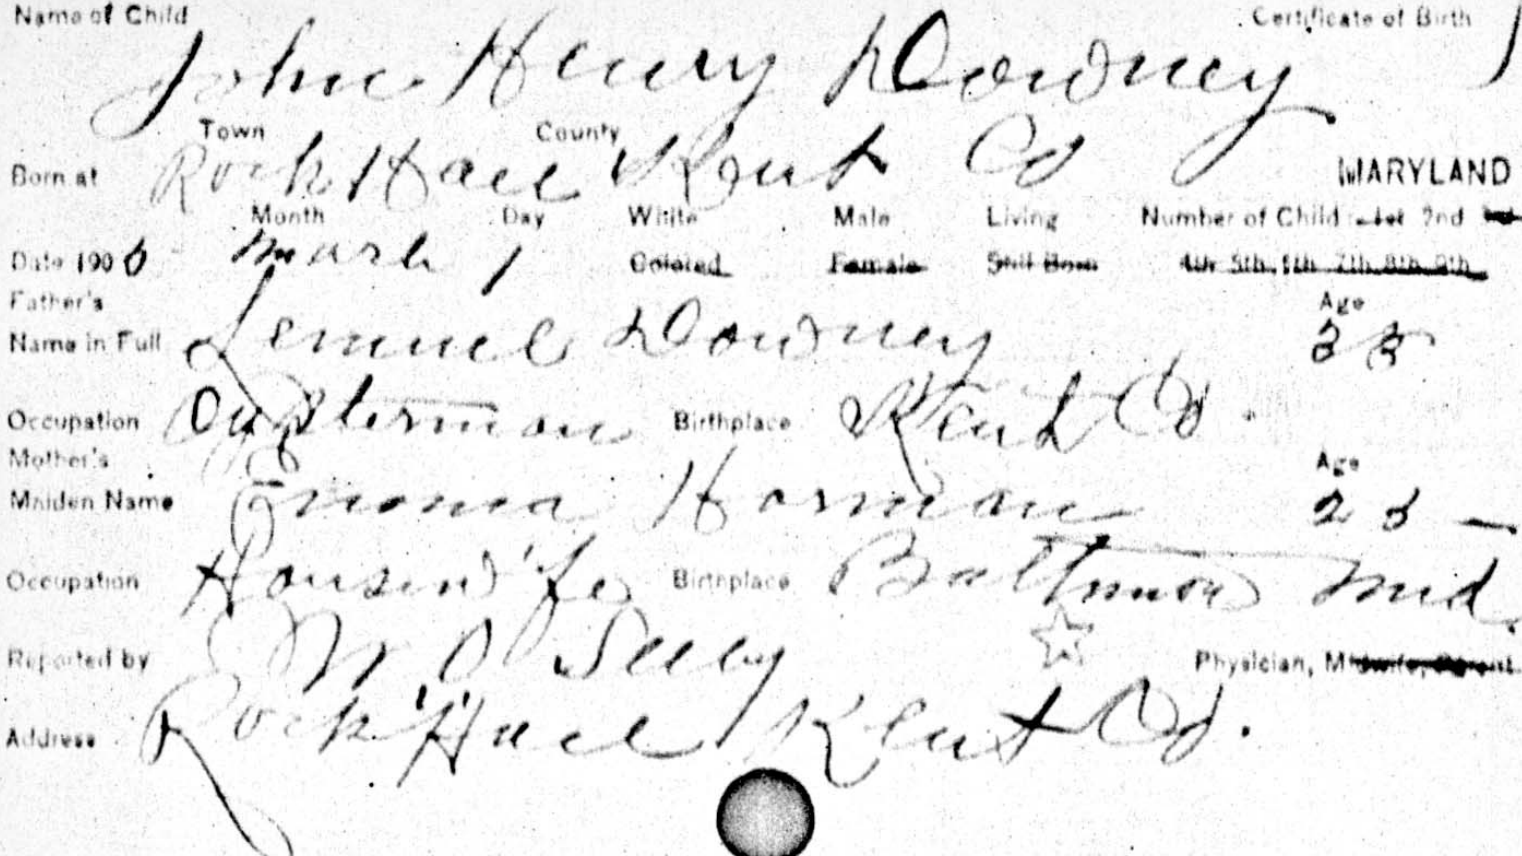 Name of Child Certificate of Birth
John Henry Downey
Town County
Born at Rock Hall Kent Co MARYLAND
Month Day White Male Living Number of Child 1st 2nd 3rd
Date 1906 March 1 Colored Female Still Born 4th 5th 6th 7th 8th 9th
Father's Age
Name in Full Lemuel Downey
Occupation Oysterman Birthplace Kent Co.
Mother's Age
Maiden Name Emma Harman
Occupation Housewife Birthplace Baltimore Md.
Reported by Selby Physician, Midwife, Parent
Address Rock Hall Kent Co.